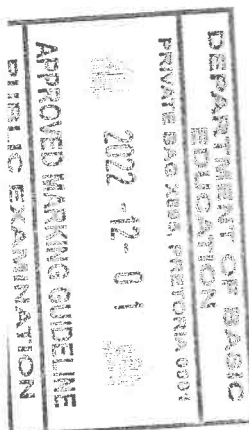 DEPARTMENT OF BASIC
EDUCATION
PRIVATE BAG PRETORIA 0001
2022 -12- 01
APPROVED MARKING GUIDELINE
PUBLIC EXAMINATION